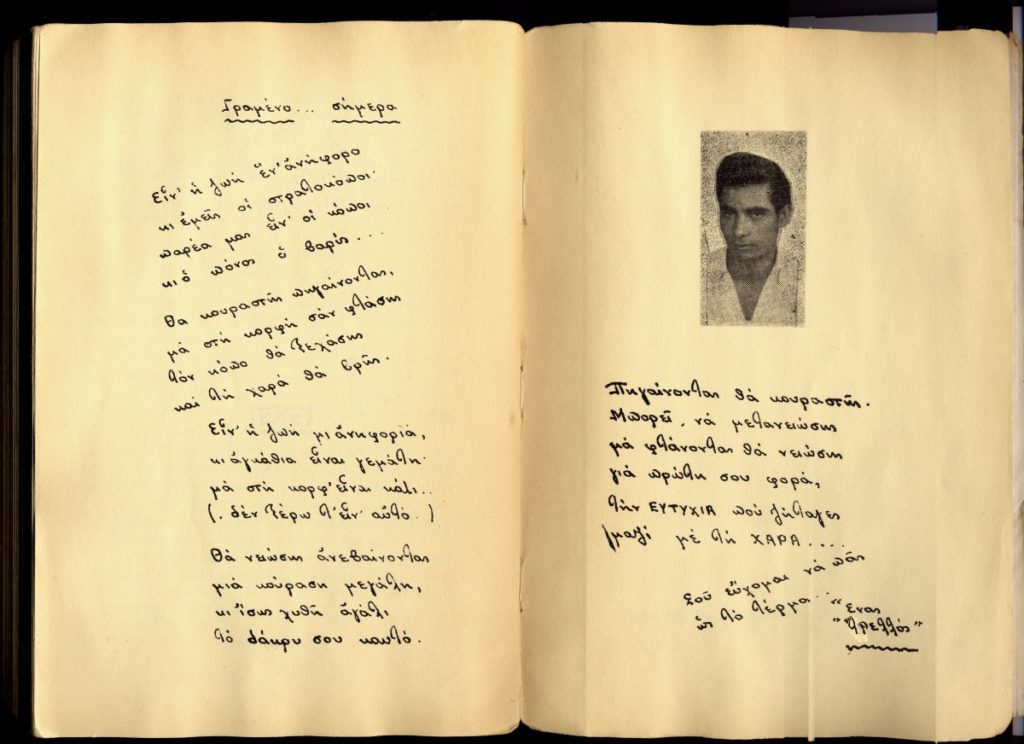 Γραμένο... σήμερα
Εἶν' ἡ ζωὴ ἕν' ἀνήφορο
κι ἐμεῖς οἱ στρατοκόποι·
παρέα μας εἶν' οἱ κόποι
κι ὁ πόνος ὁ βαρύς...
Θα κουραστῆς πηγαίνοντας,
μὰ στὴ κορφὴ σὰν φτάσης
τὸν κόπο θὰ ξεχάσης
καὶ τὴ χαρὰ θὰ βρῆς.
Εἶν' ἡ ζωὴ μι ἀνηφοριά,
κι ἀγκάθια εἶναι γεμάτη·
μὰ στὴ κορφ' εἶναι κάτι..
(. δὲν ξέρω τ' εἶν' αὐτό.)
Θὰ νειώσης ἀνεβαίνοντας
μιὰ κούραση μεγάλη,
κι ἴσως χυθῆ ἀγάλι
τὸ δάκρυ σου καυτό.
Πηγαίνοντας θὰ κουραστῆς.
Μπορεῖ, νὰ μετανειώσης
μὰ φτάνοντας θὰ νειώσης
γιὰ πρώτη σου φορά,
τὴν ΕΥΤΥΧΙΑ ποὺ ζήταγες
μαζὶ μὲ τὴ ΧΑΡΑ....
Σοῦ εὔχομαι νὰ πᾶς
ὡς τὸ τέρμα..
"Ένας
"τρελλός"